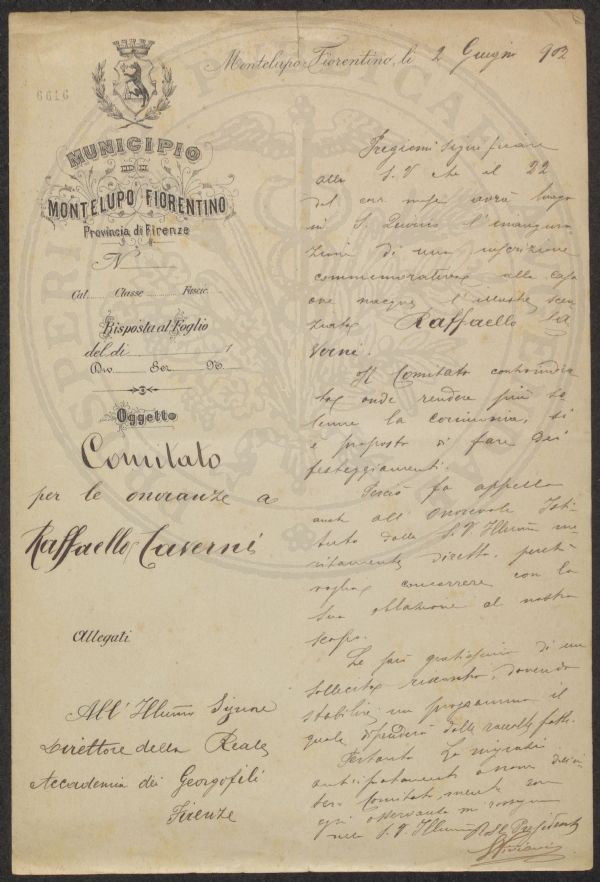 Montelupo Fiorentino, li 2 Giugno 902
6616
MUNICIPIO
DI
MONTELUPO FIORENTINO
Provincia di Firenze
N
Cat. Classe Fascic.
Risposta al Foglio
del dì 1
Div. Sez. N.
Oggetto
Comitato
per le onoranze a
Raffaello Caverni
Allegati
All' Illmo Signore
Direttore della Reale
Accademia dei Georgofili
Firenze
Pregiomi significare
alla S.V che il 22
del cor. mese avrà luogo
in S. Quirico l'inaugura
zione di una iscrizione
commemorativa alla casa
ove nacque l'illustre scen
ziato Raffaello Ca
verni.
Il Comitato
onde rendere più so
lenne la cerimonia, si
è proposto di fare dei
festeggiamenti.
Perciò fa appello
anche all' Onorevole Isti
tuto dalla S.V Illma me
ritamente diretto, perchè
voglia concorrere con la
sua oblazione al nostro
scopo.
Le sarò gratissimo di un
sollecito riscontro, dovendo
stabilire un programma il
quale dipenderà dalle raccolte fatte.
Pertanto La
anticipatamente a nome dell'in
tero Comitato, mentre con
ogni osservanza mi
della S.V Illma
Il Presidente